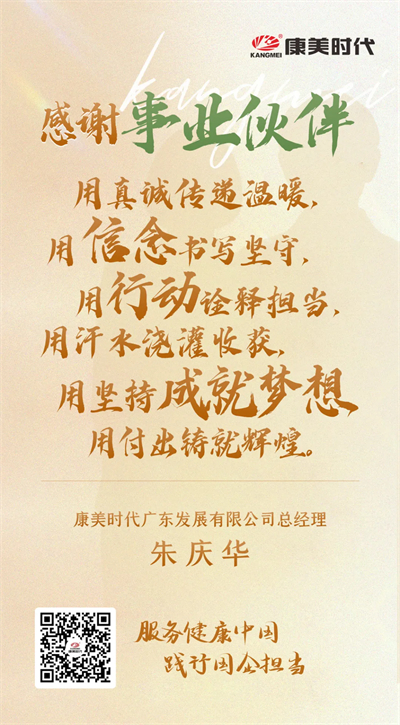 KANGMEI
康美时代
kangmei
感谢事业伙伴
用真诚传递温暖，
用信念书写坚守，
用行动诠释担当，
用汗水浇灌收获，
用坚持成就梦想
用付出铸就辉煌。
康美时代广东发展有限公司总经理
朱庆华
服务健康中国
践行国企担当